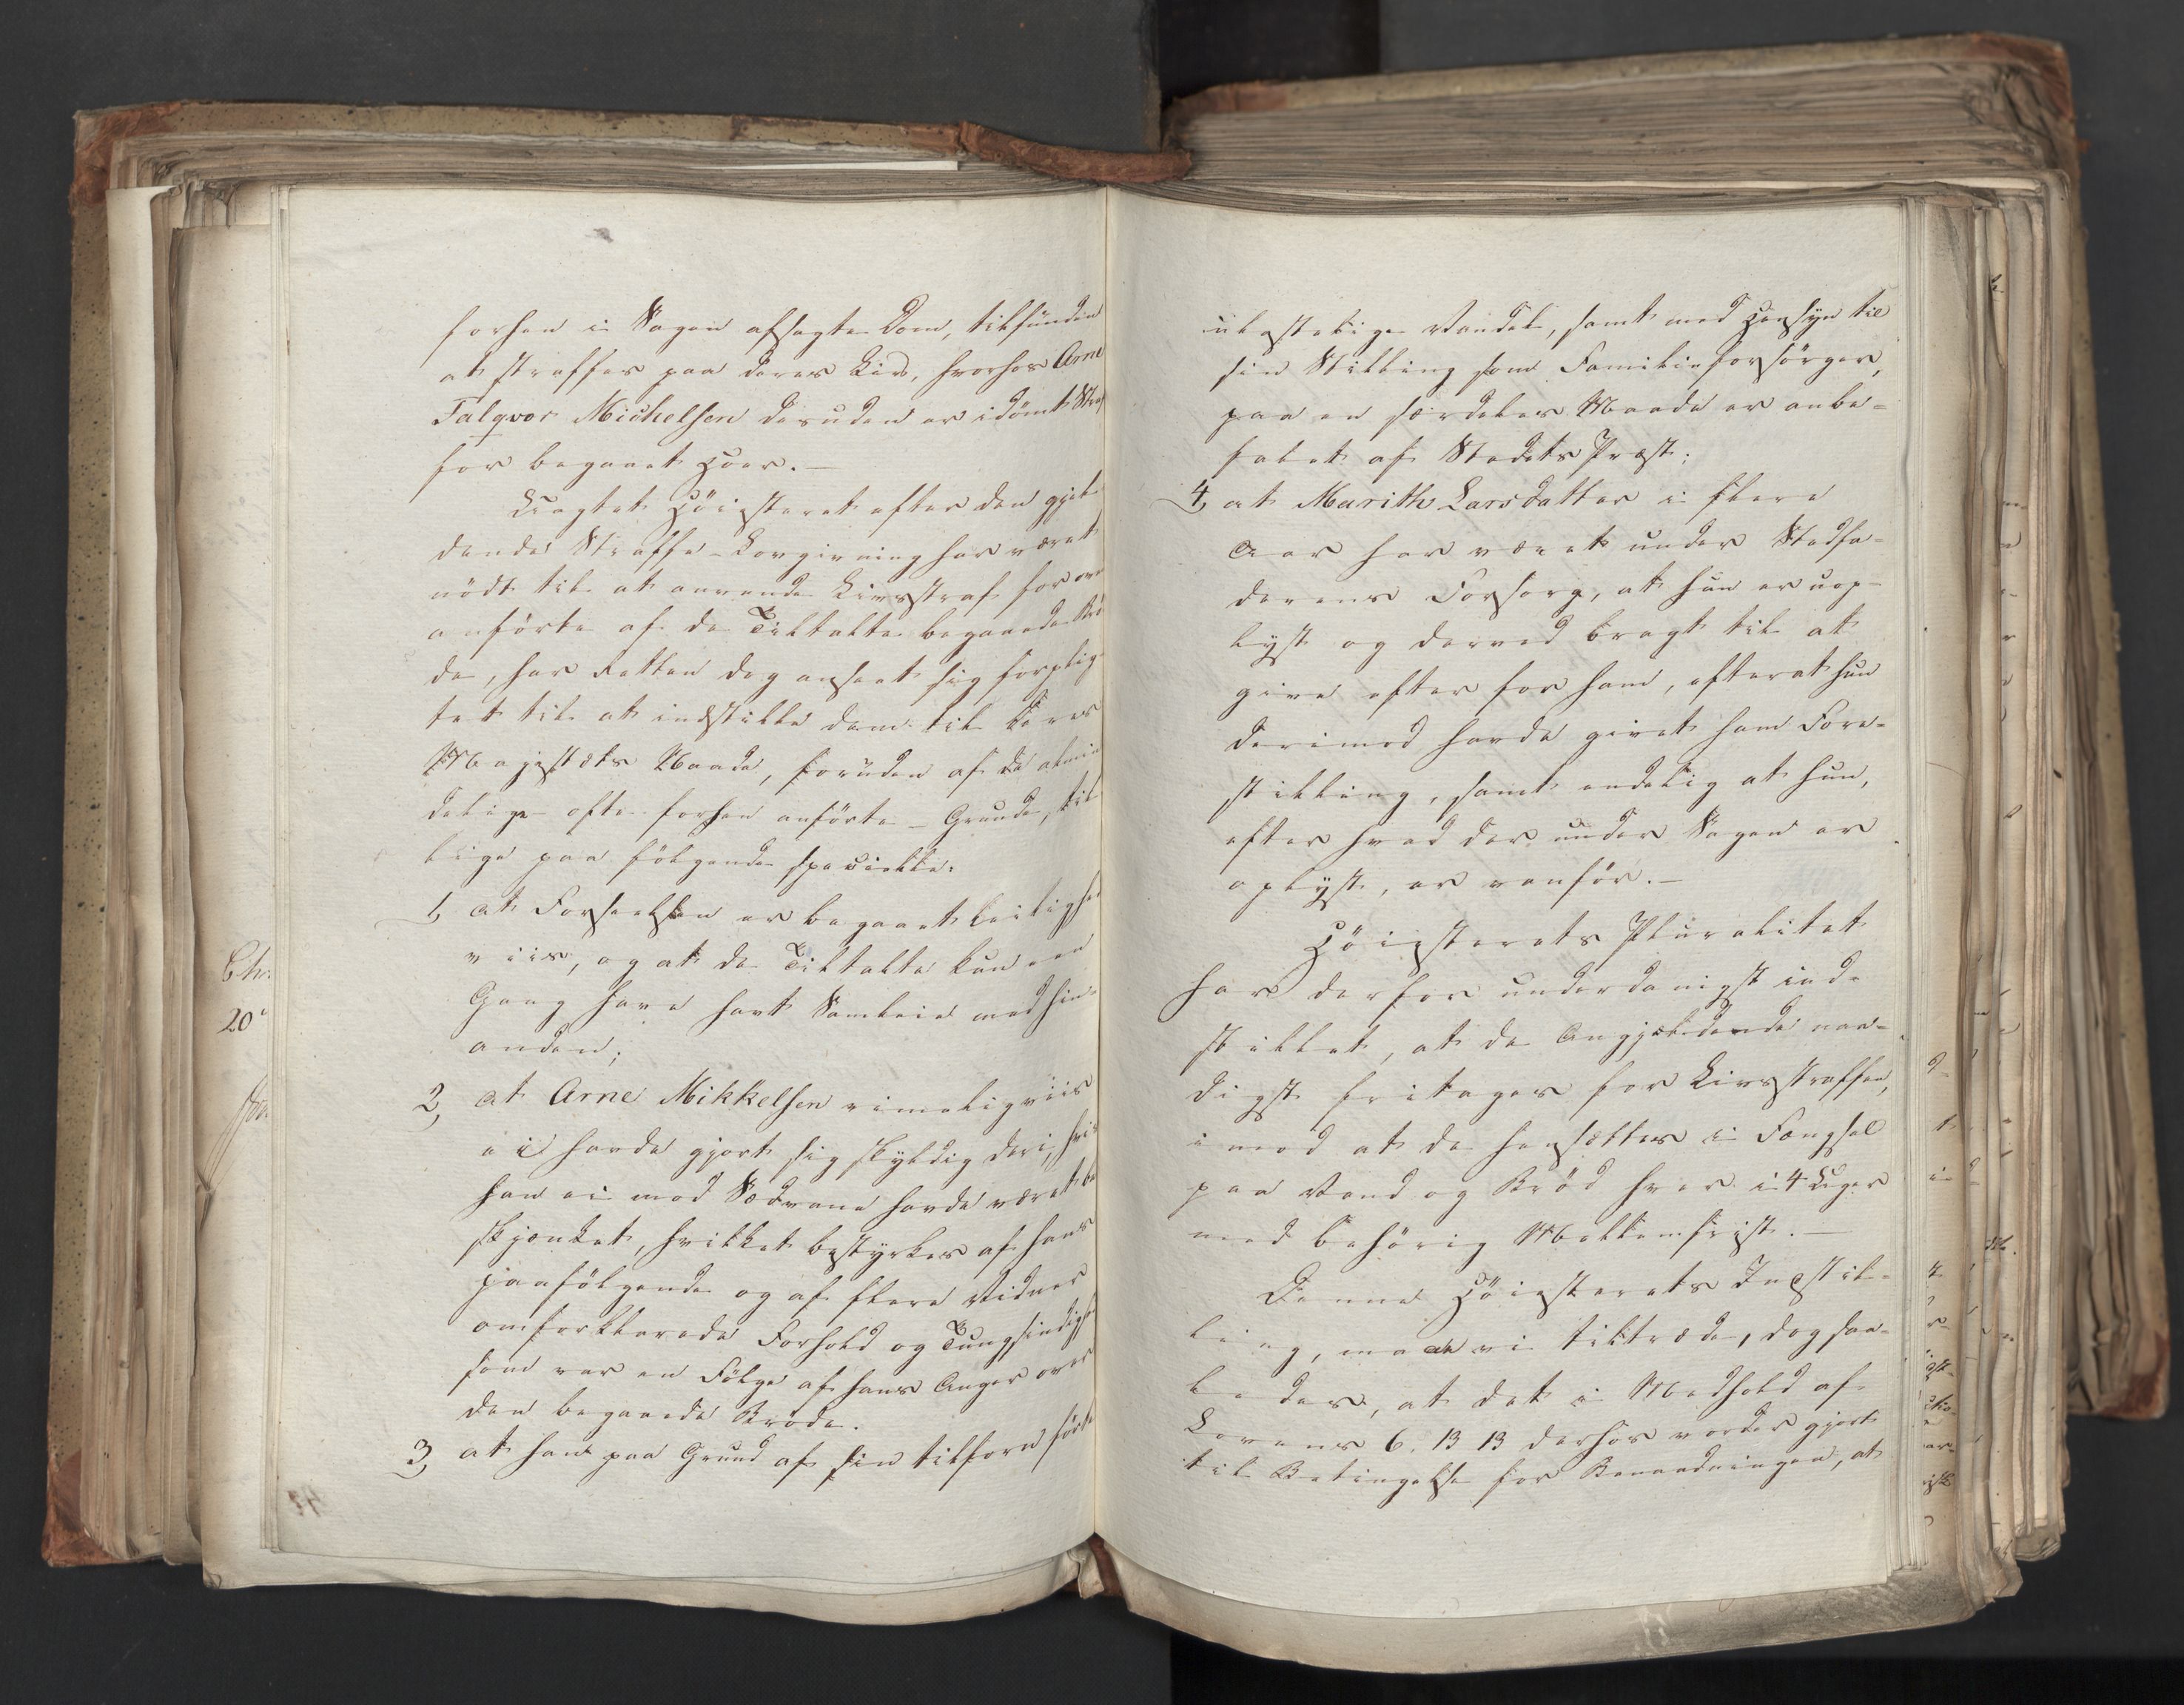 forhen i Sagen afsagte Dom, tilfunden
at straffes paa deres Liv, hvorhos Arne
Talqvor Michelsen desuden er idömt Straf
for begaaet Hoer.—
Uagtet Höiesteret efter den gjel-
dende Straffe-Lovgivning har været
nödt til at anvende Livsstraf for oven
anförte af de Tiltalte begaaede Brö-
de, har Retten dog anseet sig forplig-
tet til at indstille dem til Deres
Majestæts Naade, foruden af de almin-
delige ofte forhen anförte Grunde, til-
lige paa fölgende specielle:
1, at Forseelsen er begaaet leilighed
viis, og at de Tiltalte kun een
Gang have havt Samleie med hin-
anden;
2, at Arne Mikkelsen rimeligviis
ei havde gjort sig skyldig deri, hvis
han ei mod Sædvane havde været be-
skjænket, hvilket bestyrkes af hans
paafölgende og af flere Vidner
omforklarede Forhold og Tungsindighed
som var en Fölge af hans Anger over
den begaaede Bröde.
3, at han paa Grund af sin tilforn förte
ulastelige Vandel, samt med Hensyn til
sin Stilling som Familieforsörger,
paa en særdeles Maade er anbe-
falet af Stedets Præst;
4, at Marith Larsdatter i flere
Aar har været under Stedfa-
derens Forsorg, at hun er uop-
lyst og derved bragt til at
give efter for ham, efterat hun
derimod havde givet ham Fore-
stilling, samt endelig at hun,
efter hvad der under Sagen er
oplyst, er vanför.—
Höiesterets Pluralitet
har derfor underdanigst ind-
stillet, at de Angjældende naa-
digst fritages for Livsstraffen,
imod at de hensættes i Fængsel
paa Vand og Bröd hver i 4 Uger
med behörig Mellemfrist.—
Denne Höiesterets Indstil-
ling, maae vi tiltræde, dog saa-
ledes, at det i Medhold af
Lovens 6. 13 13 derhos vorder gjort
til Betingelse for Benaadningen, at